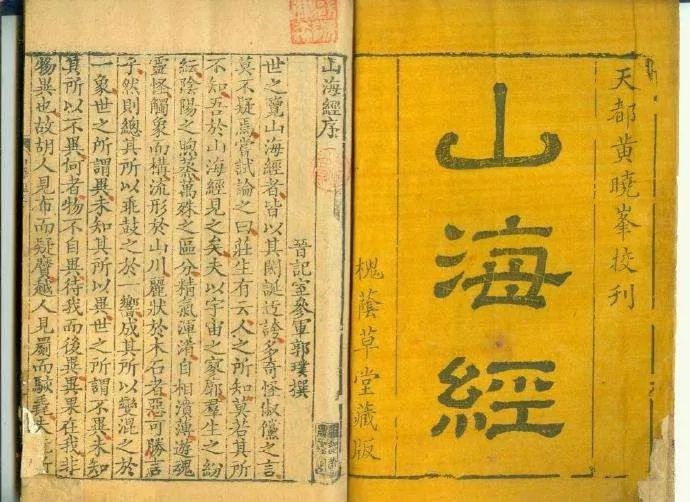 天都黄曉峯挍刊
山海經
槐蔭草堂藏版
山海經序
晉記室叅軍郭璞撰
世之覽山海經者皆以其閎誕迂誇多奇怪俶儻之言
莫不疑焉嘗試論之曰莊生有云人之所知莫若其所
不知吾於山海經見之矣夫以宇宙之寥廓羣生之紛
紜陰陽之煦蒸萬殊之區分精氣渾淆自相濆薄遊魂
靈怪觸象而構流形於山川麗狀於木石者惡可勝言
乎然則總其所以乖鼓之於一響成其所以變混之於
一象世之所謂異未知其所以異世之所謂不異未知
其所以不異何者物不自異待我而後異異果在我非
物異也故胡人見布而疑黂越人見罽而駭毳夫